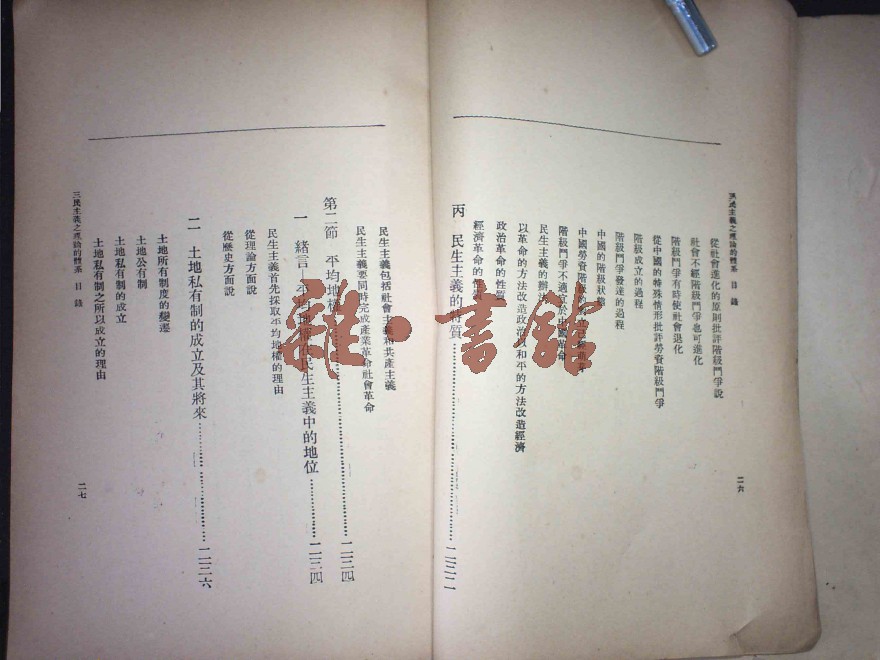 三民主義之理論的體系　目錄
從社會進化的原則批評階級鬥爭說
社會不經階級鬥爭也可進化
階級鬥爭有時使社會退化
從中國的特殊情形批評勞資階級鬥爭
階級成立的過程
階級鬥爭發達的過程
中國的階級狀態
中國勞資階級
階級鬥爭不適宜於中國革命
民生主義的辦法
以革命的方法改造政治以和平的方法改造經濟
政治革命的性質
經濟革命的性質
丙　民生主義的特質
二六
民生主義包括社會主義和共產主義
民生主義要同時完成產業革命社會革命
第二節　平均地權……二三四
一　緒言　平均地權在民生主義中的地位……二三四
民生主義首先採取平均地權的理由
從理論方面說
從歷史方面說
二　土地私有制的成立及其將來……二三六
土地所有制度的變遷
土地公有制
土地私有制的成立
土地私有制之所以成立的理由
三民主義之理論的體系　目錄
二七
雜·書館